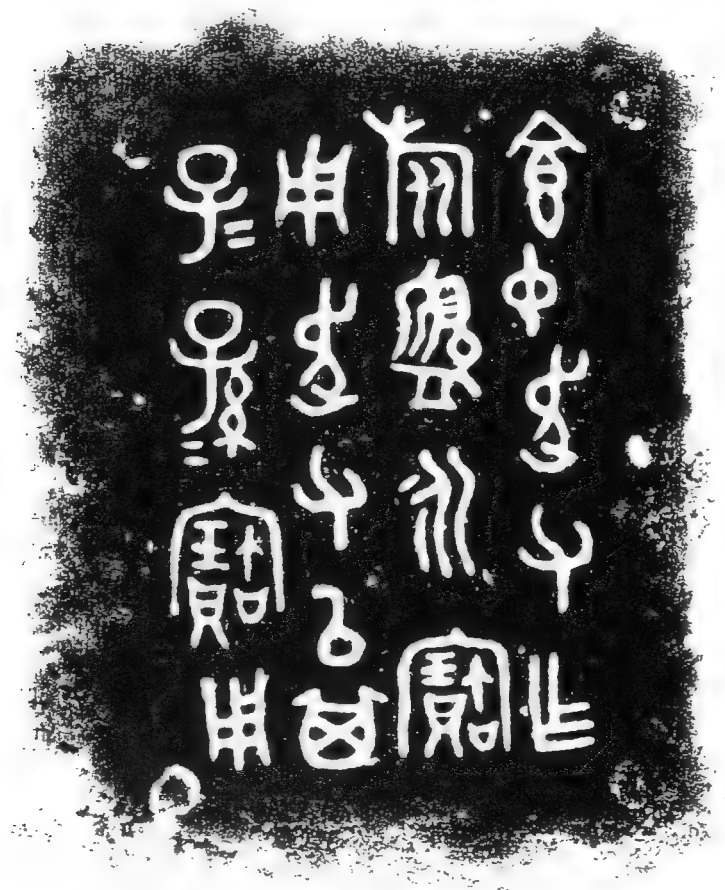 食中走父乍
旅盨永寶
用走父以其
子＝孫＝寶用